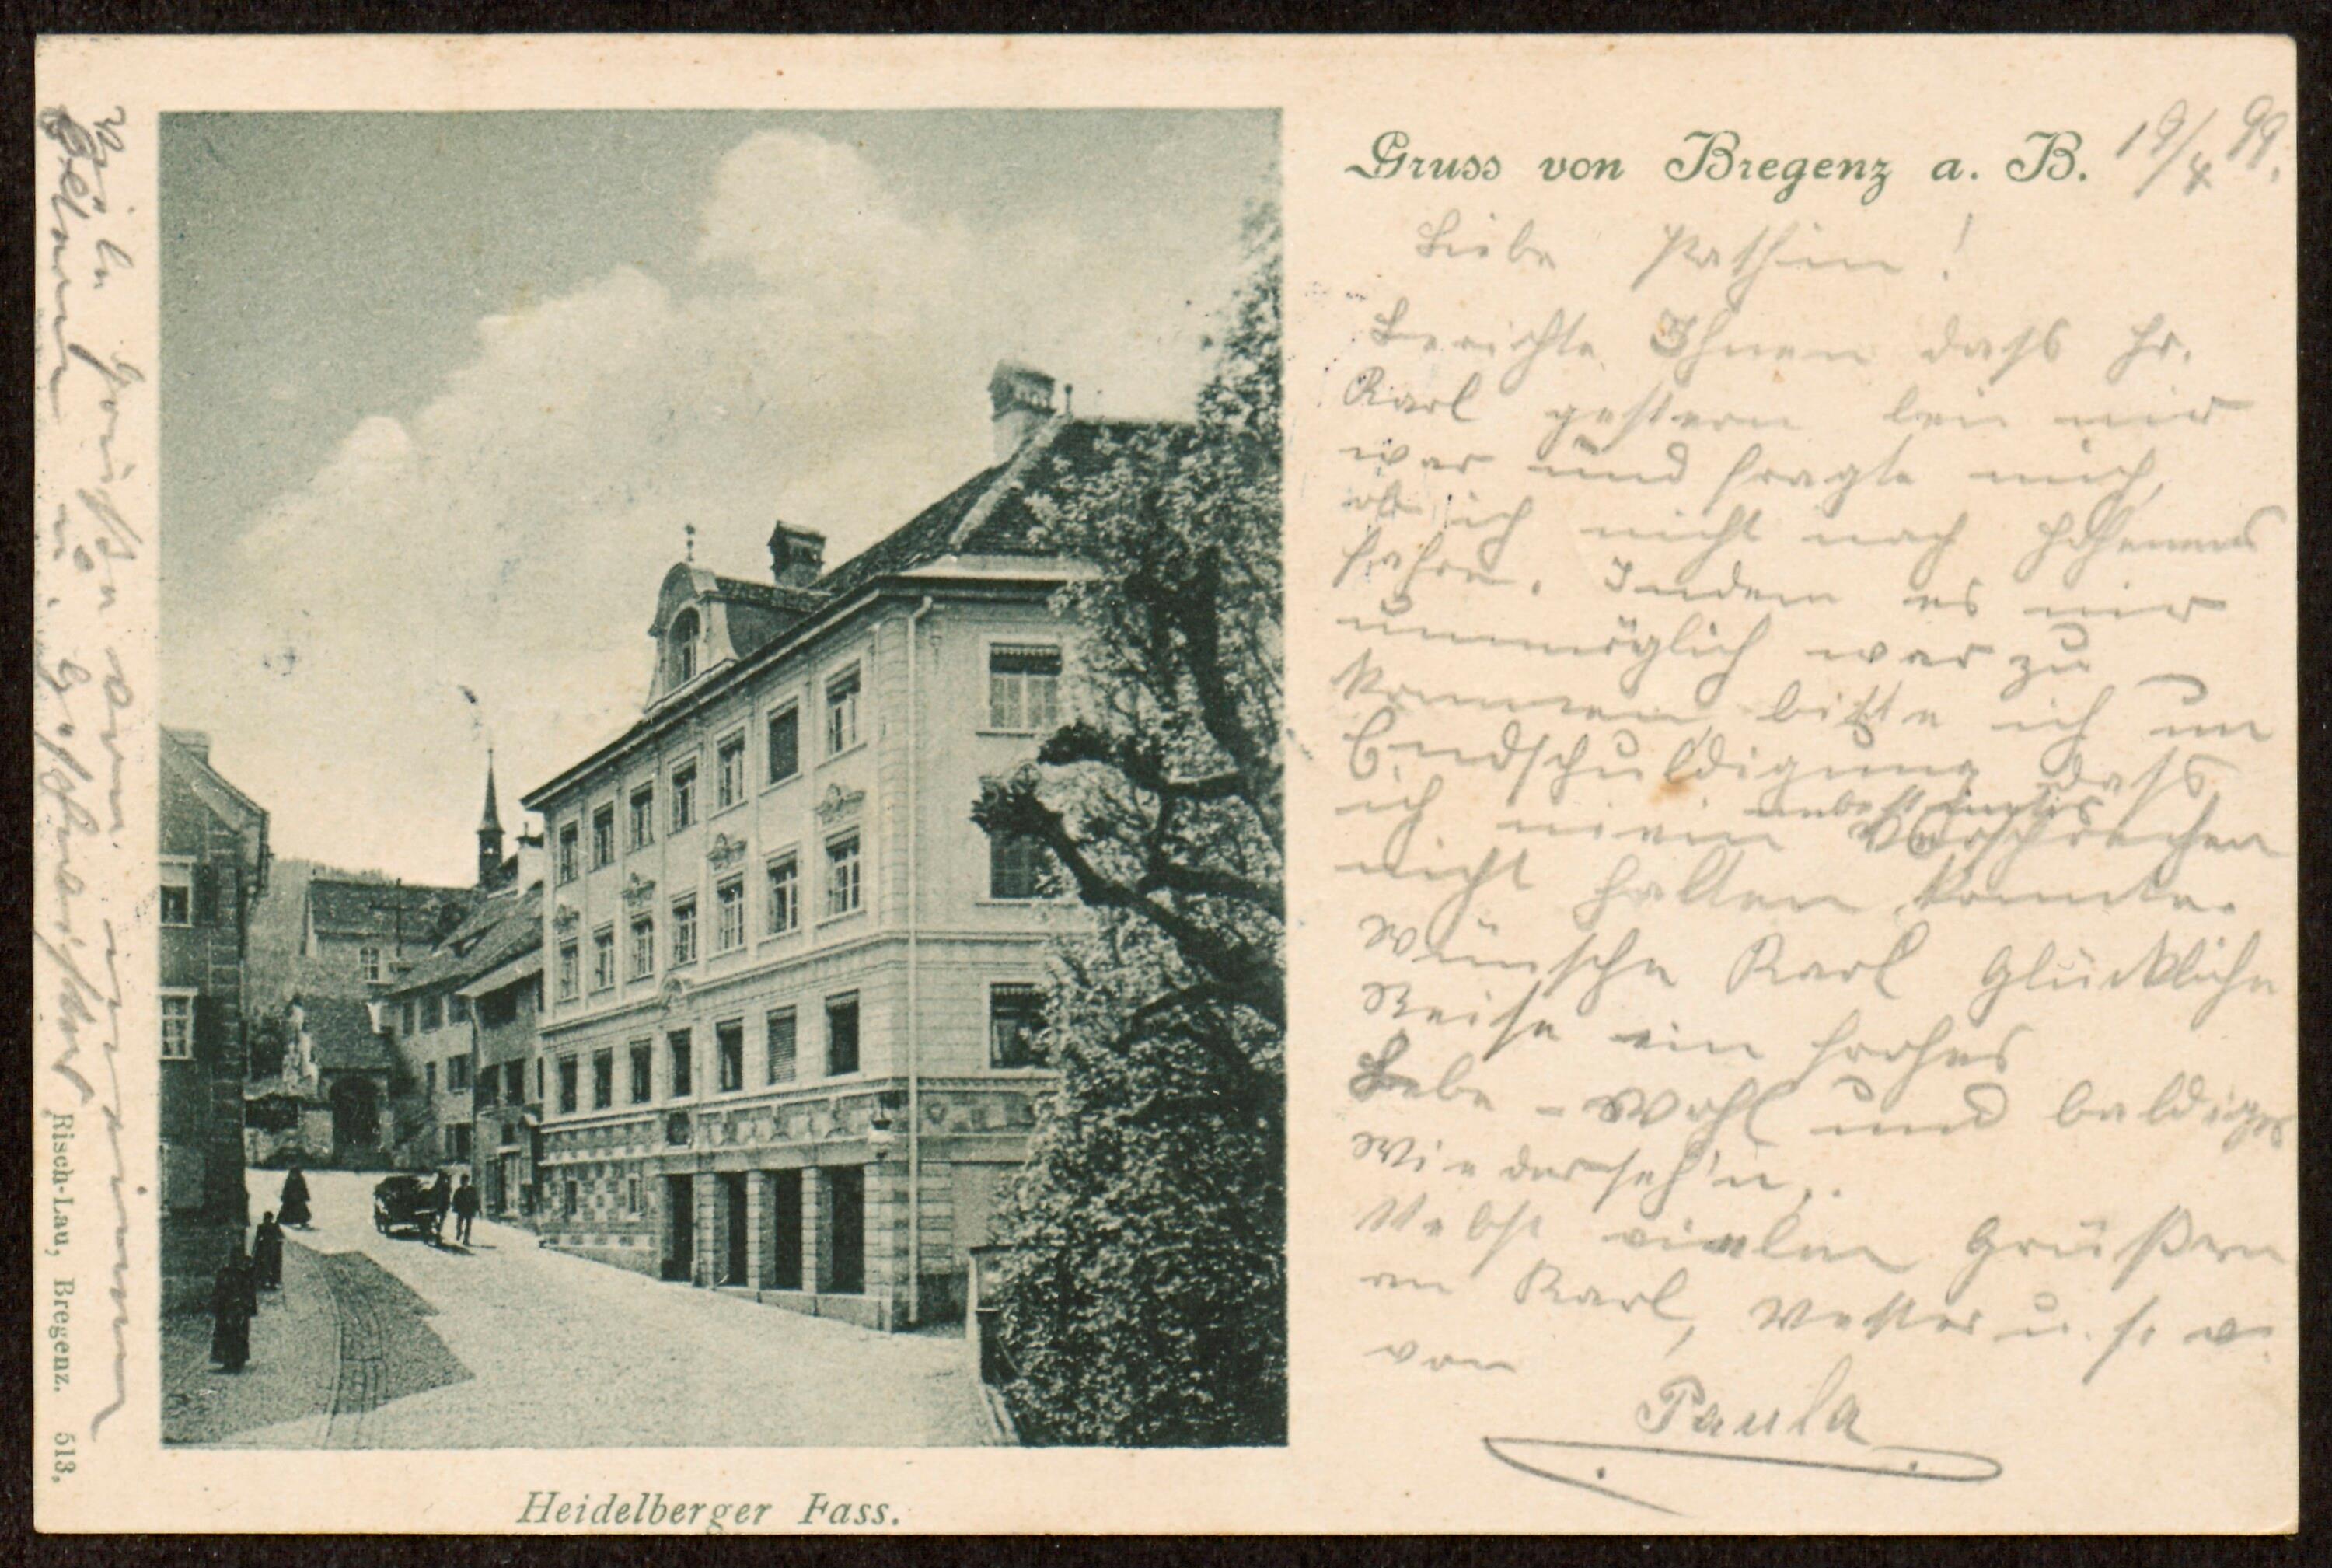 Gruss von Bregenz a. B. 19/4 99.
Liebe Pathin!
Berichte Ihnen dass Hr.
Karl gestern bei mir
war und fragte mich,
ob ich nicht nach Hohenems
fahre. Indem es mir
unmöglich war zu
kommen bitte ich um
Endschuldigung dass
ich mein Versprechen
nicht halten konnte.
Wünsche Karl Glückliche
Reise ein frohes
Lebe-Wohl und baldiges
Wiederseh'n.
Nebst vielen Grüßen
an Karl, Vetter u. s. w.
von
Paula
Viele Grüße von meinen
Eltern u. Geschwister
Risch-Lau, Bregenz. 513.
Heidelberger Fass.